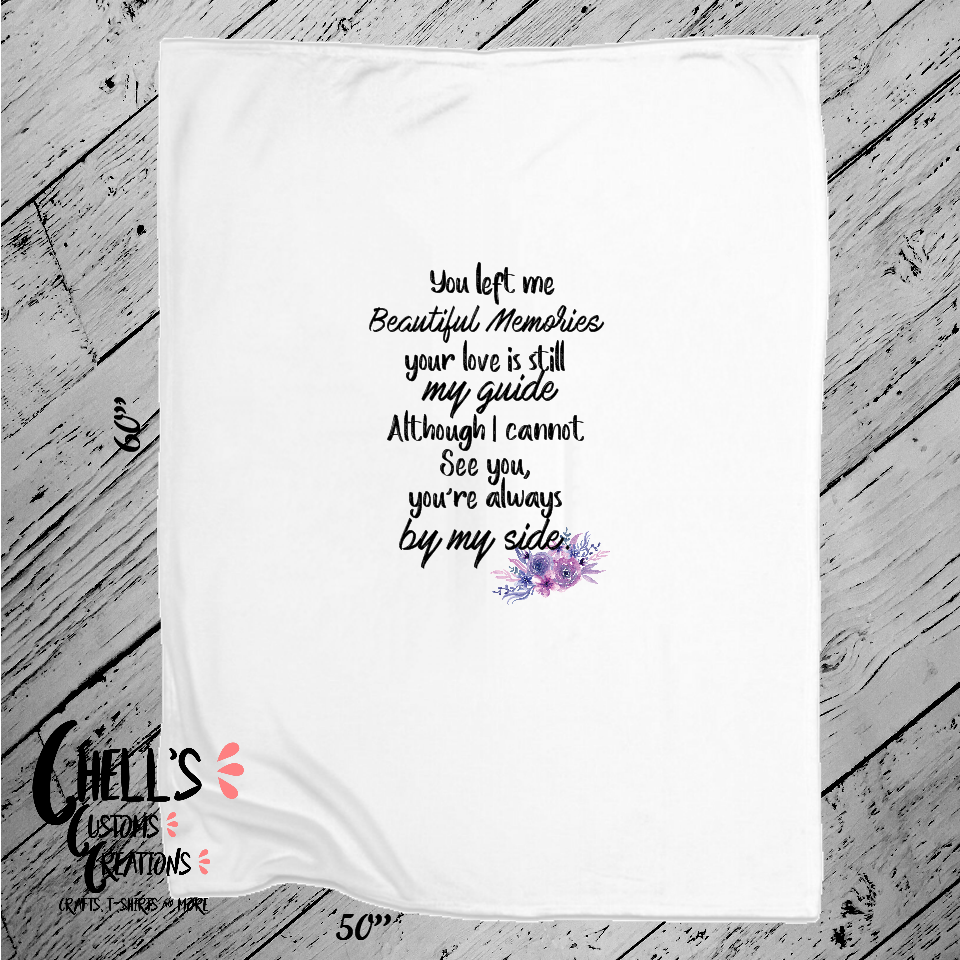 You left me
Beautiful Memories
your love is still
my guide
Although I cannot
See you,
you're always
by my side.
60”
CHELL'S
CUSTOMS
CREATIONS
CRAFTS, T-SHIRTS & MORE
50”